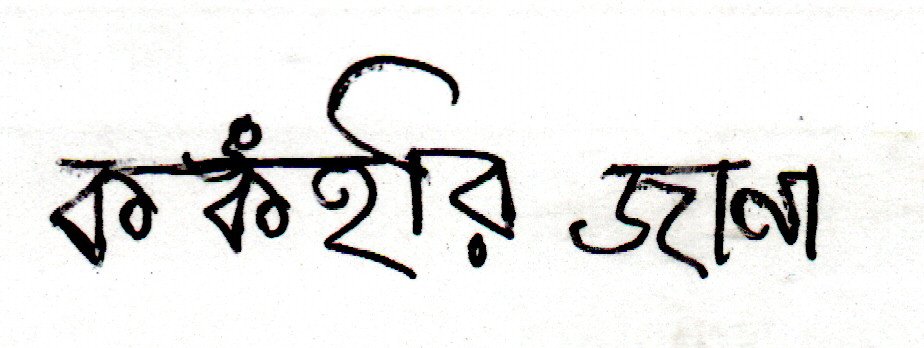 ককঁহীর জানা